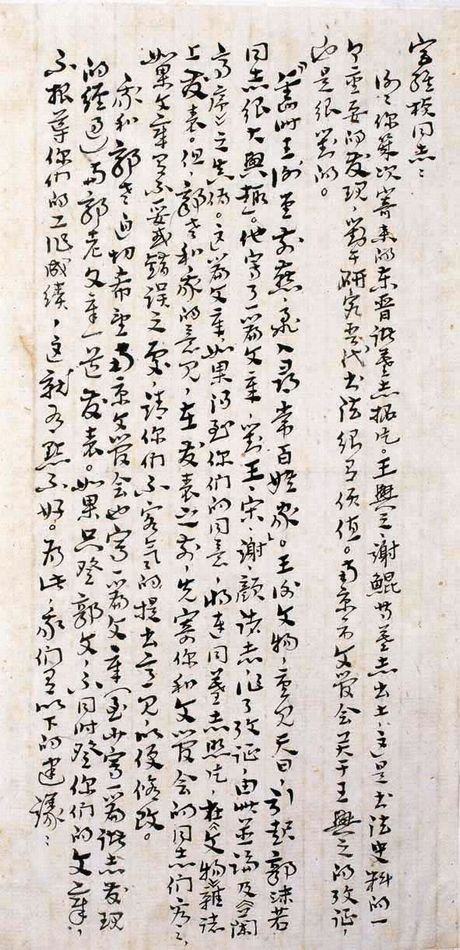 宫维桢同志：
谢谢你几次寄来的东晋诸墓志拓片。王興之、谢鲲等墓志出土，这是书法史料的一
个重要的发现，对于研究当代书法很有价值。南京市文管会关于王興之的考证，
也是很对的。
「舊时王谢堂前燕，飞入寻常百姓家」。王谢文物，重见天日，引起郭沫若
同志很大興趣。他写了一篇文章，对王、宋、谢、颜诸志，作了考证，由此并论及《兰
亭序》之真伪。这篇文章，如果得到你们的同意，将连同墓志照片，在《文物》雜誌
上发表。但，郭老和我的意见，在发表之前，先寄你和文管会的同志们看看，
如果文章有不妥或错误之处，请你们不客气的提出意见，以便修改。
我和郭老迫切希望南京文管会也写一篇文章（至少写一篇诸志发现
的经过），与郭老文章一道发表。如果只登郭文，不同时登你们的文章，
不報導你们的工作成绩，这就有點不好。为此我们有以下的建議：